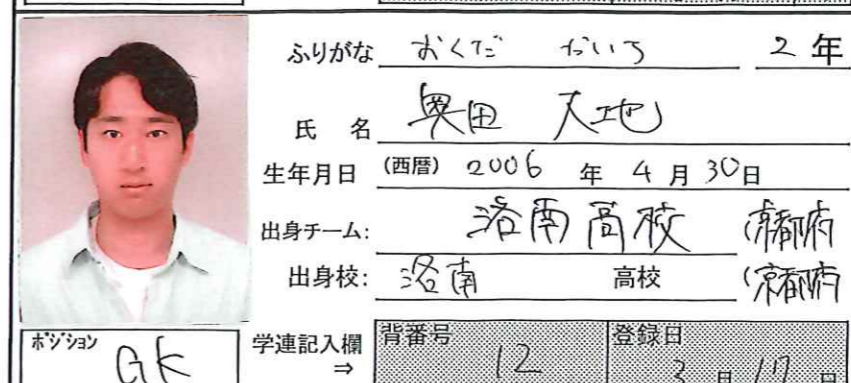 ふりがな おくだ だいち 2年
氏 名 奥田 大地
生年月日 (西暦) 2006 年 4 月 30日
出身チーム: 洛南高校 (京都府
出身校: 洛南 高校 (京都府
ポジション GK 学連記入欄 ⇒ 背番号 12 登録日 3 月 17 日